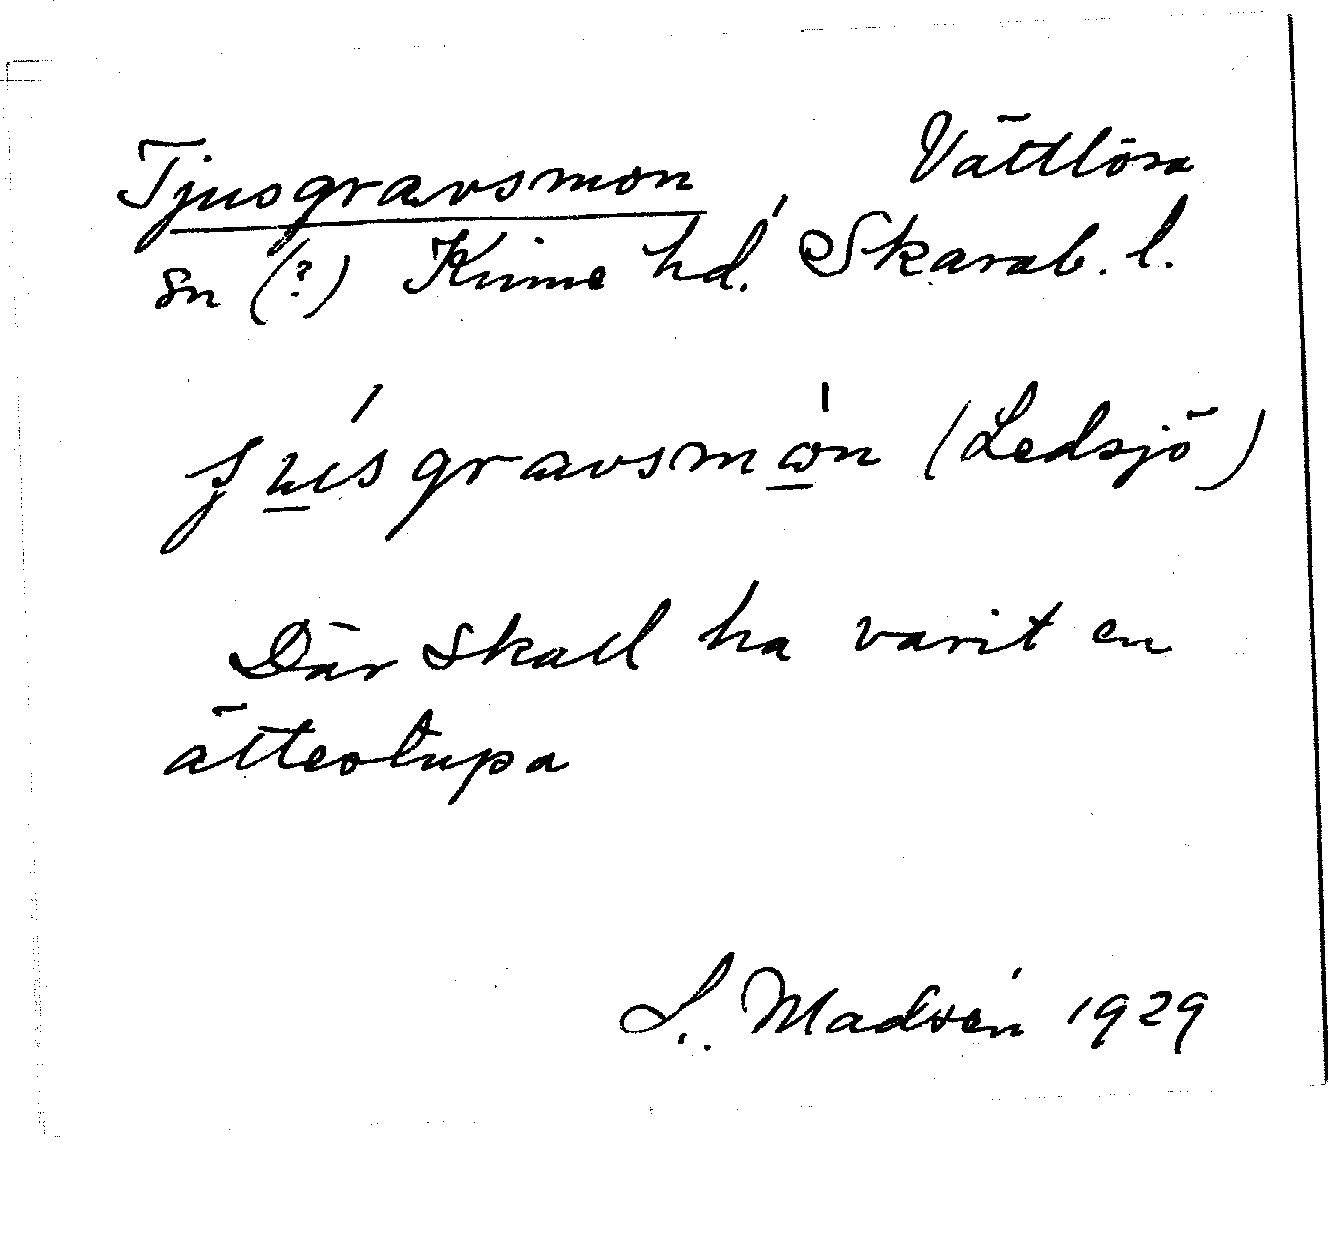 Tjusgravsmon Vättlösa
sn (?) Kinne hd, Skarab. l.
ʃu̲sgravsmω̲n (Ledsjö)
Där skall ha varit en
ättestupa
S. Madsén 1929